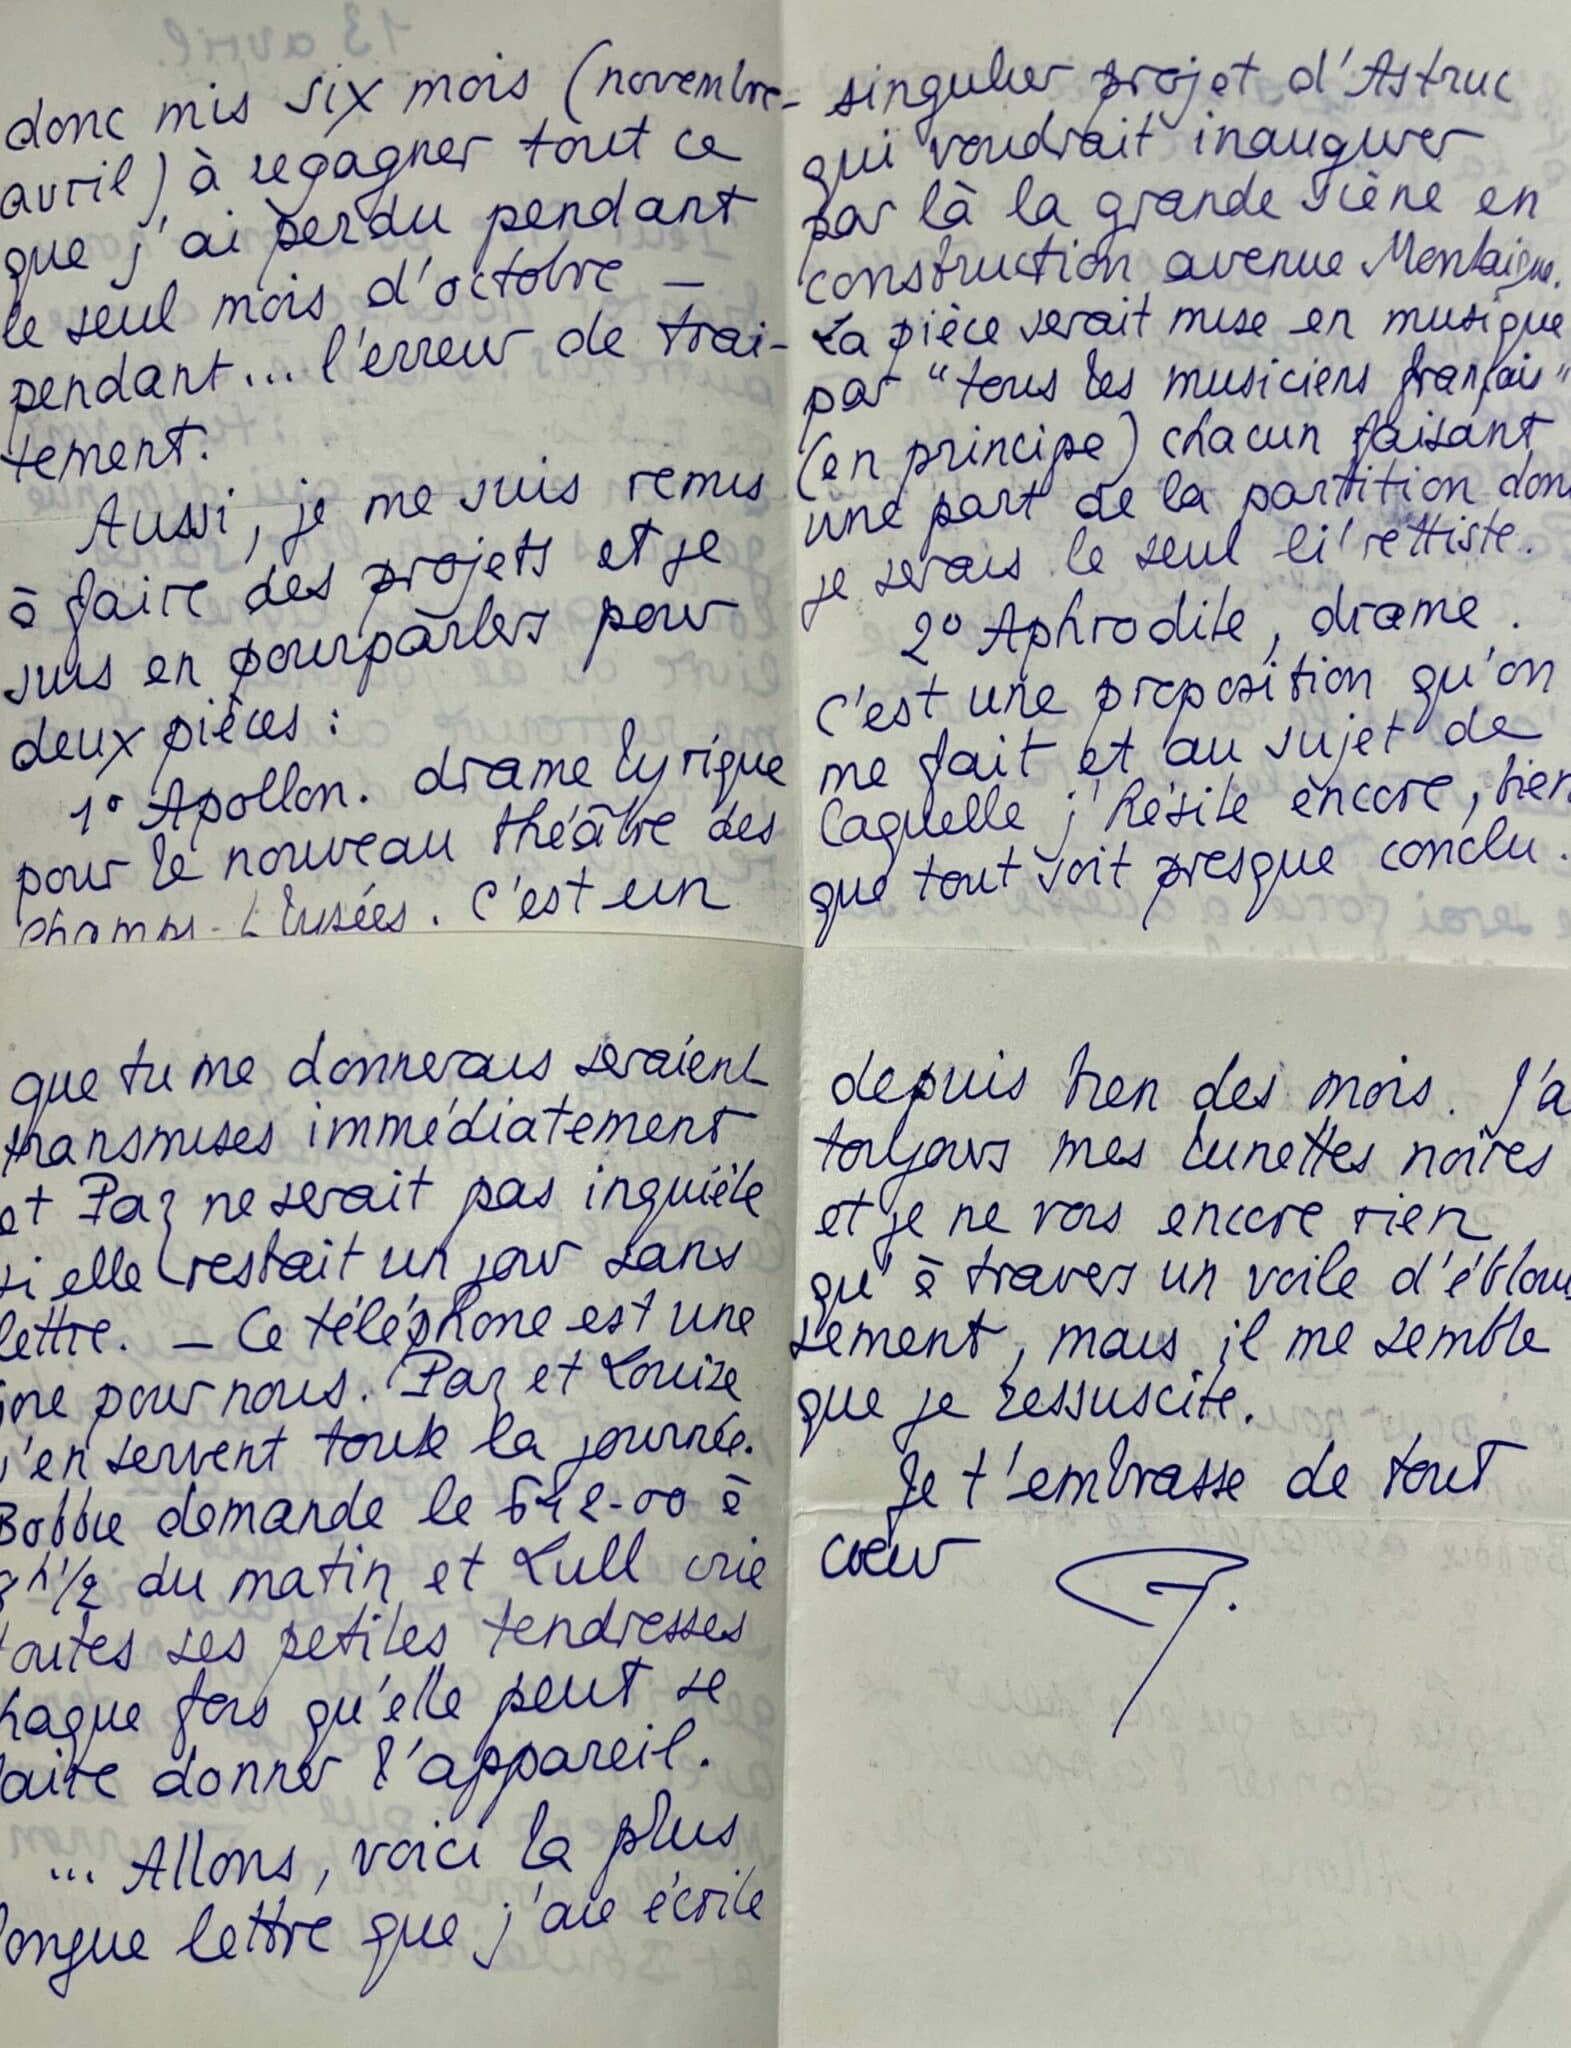 donc mis six mois (novembre-
avril) à regagner tout ce
que j'ai perdu pendant
le seul mois d'octobre —
pendant... l'erreur de trai-
tement.
Aussi, je me suis remis
à faire des projets et je
suis en pourparlers pour
deux pièces :
1° Apollon. drame lyrique
pour le nouveau théâtre des
Champs-Elysées. C'est un
singulier projet d'Astruc
qui voudrait inaugurer
par là la grande scène en
construction avenue Montaigne.
La pièce serait mise en musique
par "tous les musiciens français"
(en principe) chacun faisant
une part de la partition don
je serais le seul li'rettiste.
2° Aphrodite, drame.
C'est une proposition qu'on
me fait et au sujet de
laquelle j'hésite encore, bien
que tout soit presque conclu.
que tu me donnerais seraient
transmises immédiatement
et Paz ne serait pas inquiète
si elle restait un jour sans
lettre. — Ce téléphone est une
joie pour nous. Paz et Louise
s'en servent toute la journée.
Bobbie demande le 642-00 à
8h1/2 du matin et Lull crie
toutes ses petites tendresses
chaque fois qu'elle peut se
faire donner l'appareil.
... Allons, voici la plus
longue lettre que j'aie écrite
depuis bien des mois. J'a
toujours mes lunettes noires
et je ne vois encore rien
qu'à travers un voile d'éblouis
sement, mais il me semble
que je ressuscite.
Je t'embrasse de tout
cœur
13 avril.